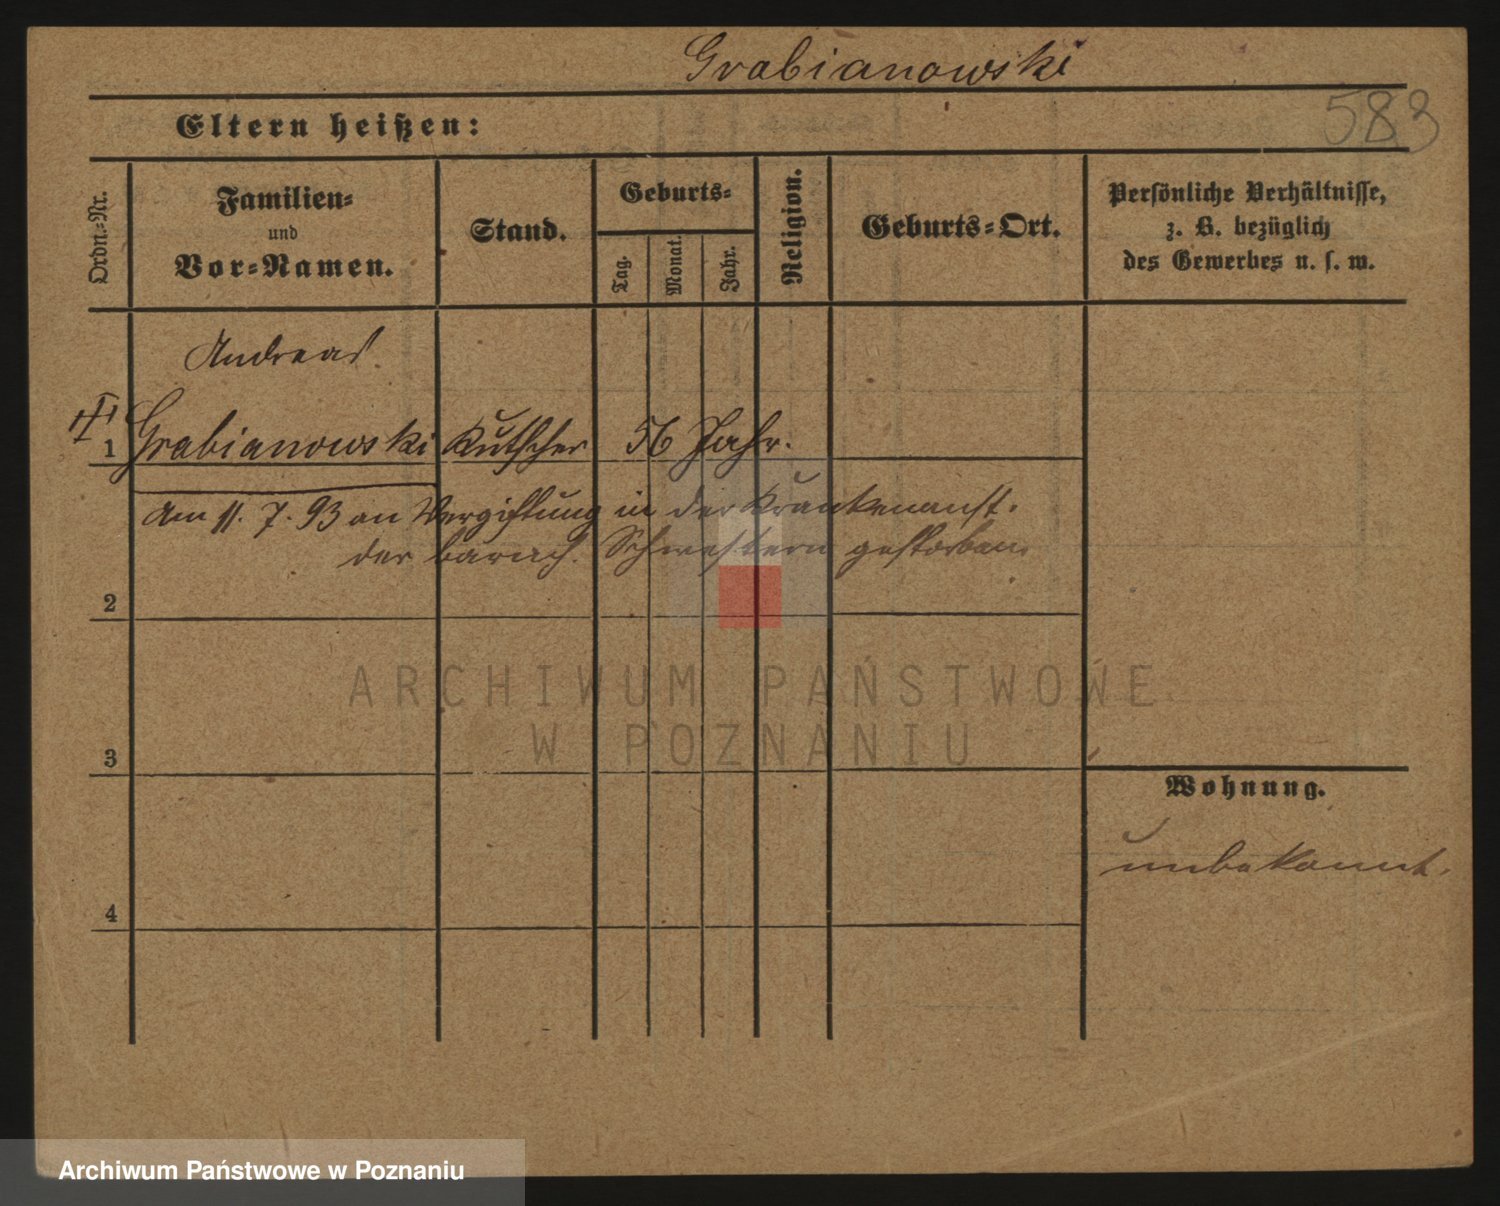 Grabianowski
583
Eltern heißen:
Ordn.=Nr.
Familien=
und
Vor=Namen.
Stand.
Geburts=
Tag.
Monat.
Jahr.
Religion.
Geburts=Ort.
Persönliche Verhältnisse,
z. B. bezüglich
des Gewerbes u. s. w.
Andreas
1 Grabianowski Kutscher 56 Jahr.
Am 11. 7. 93 an Vergiftung in der Krankenanst.
der barmh. Schwestern gestorben.
2
3
4
Wohnung.
unbekannt.
ARCHIWUM PAŃSTWOWE
W POZNANIU
Archiwum Państwowe w Poznaniu